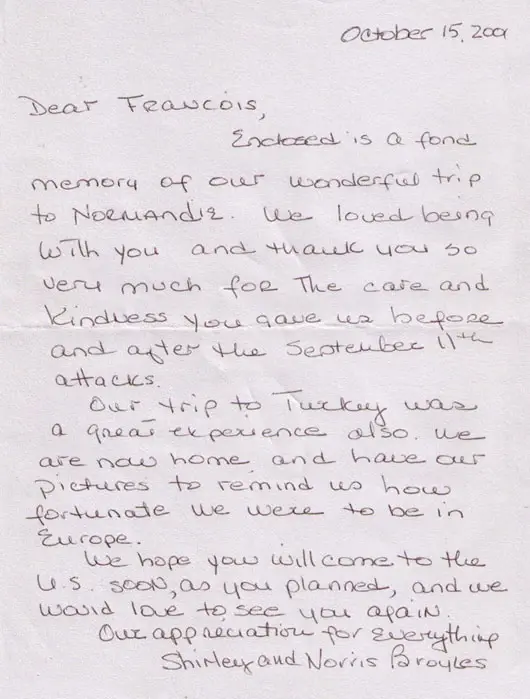 October 15, 2001
Dear Francois,
Enclosed is a fond
memory of our wonderful trip
to Normandie. We loved being
with you and thank you so
very much for the care and
kindness you gave us before
and after the September 11th
attacks.
Our trip to Turkey was
a great experience also. We
are now home and have our
pictures to remind us how
fortunate we were to be in
Europe.
We hope you will come to the
U.S. soon, as you planned, and we
would love to see you again.
Our appreciation for everything
Shirley and Norris Broyles